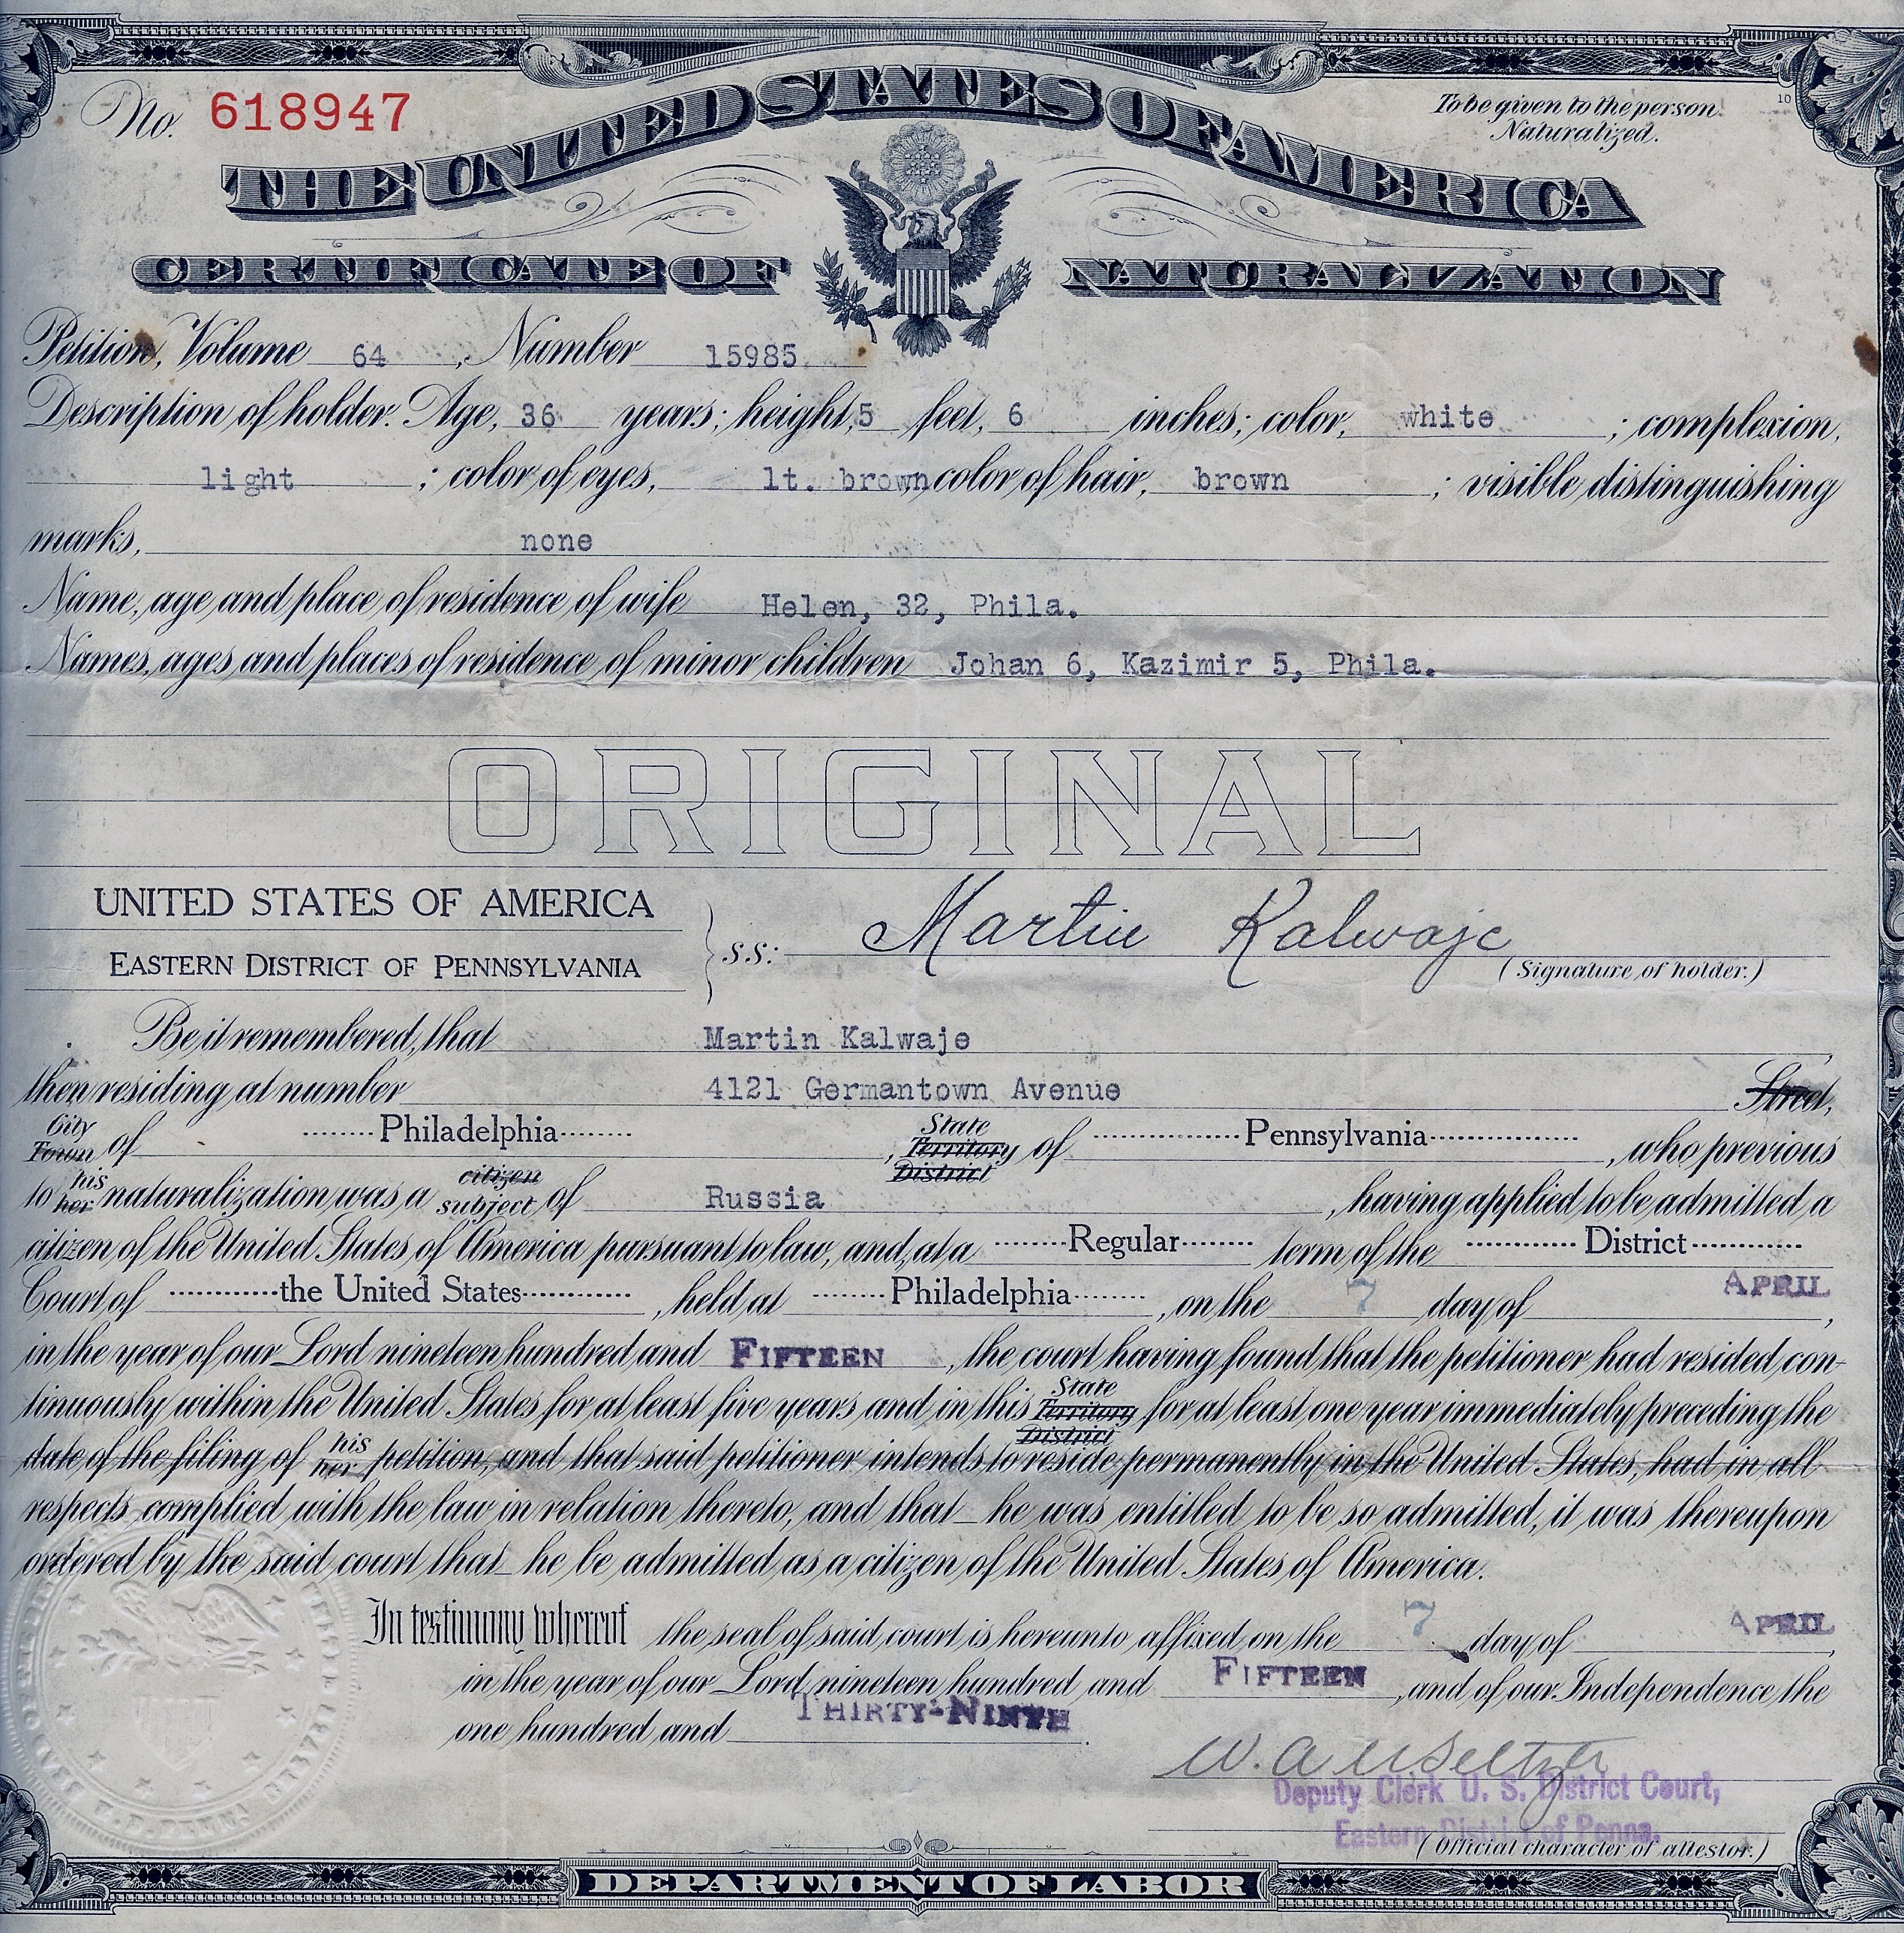 No. 618947
To be given to the person Naturalized.
10
THE UNITED STATES OF AMERICA
CERTIFICATE OF NATURALIZATION
Petition, Volume 64, Number 15985
Description of holder. Age, 36 years; height, 5 feet, 6 inches; color, white; complexion,
light; color of eyes, lt. brown, color of hair, brown; visible distinguishing
marks, none
Name, age and place of residence of wife Helen, 32, Phila.
Names, ages and places of residence of minor children Johan 6, Kazimir 5, Phila.
ORIGINAL
UNITED STATES OF AMERICA
EASTERN DISTRICT OF PENNSYLVANIA
s.s: Martin Kalwaje
(Signature of holder.)
Be it remembered, that Martin Kalwaje
then residing at number 4121 Germantown Avenue Street,
City Town of Philadelphia, State Territory District of Pennsylvania, who previous
to his her naturalization was a citizen subject of Russia, having applied to be admitted a
citizen of the United States of America pursuant to law, and, at a Regular term of the District
Court of the United States, held at Philadelphia, on the 7 day of APRIL,
in the year of our Lord nineteen hundred and FIFTEEN, the court having found that the petitioner had resided con-
tinuously within the United States for at least five years and in this State Territory District for at least one year immediately preceding the
date of the filing of his her petition, and that said petitioner intends to reside permanently in the United States, had in all
respects complied with the law in relation thereto, and that _he was entitled to be so admitted, it was thereupon
ordered by the said court that _he be admitted as a citizen of the United States of America.
In testimony whereof the seal of said court is hereunto affixed on the 7 day of APRIL,
in the year of our Lord nineteen hundred and FIFTEEN, and of our Independence the
one hundred and THIRTY-NINTH.
Deputy Clerk U. S. District Court,
Eastern District of Penna.
(Official character of attestor.)
DEPARTMENT OF LABOR